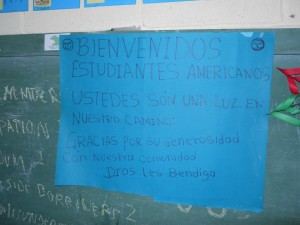 BIENVENIDOS
ESTUDIANTES AMERICANOS
USTEDES SON UNA LUZ EN
NUESTRO CAMINO.
GRACIAS POR SU Generosidad
Con Nuestra Comunidad
Dios Les Bendiga